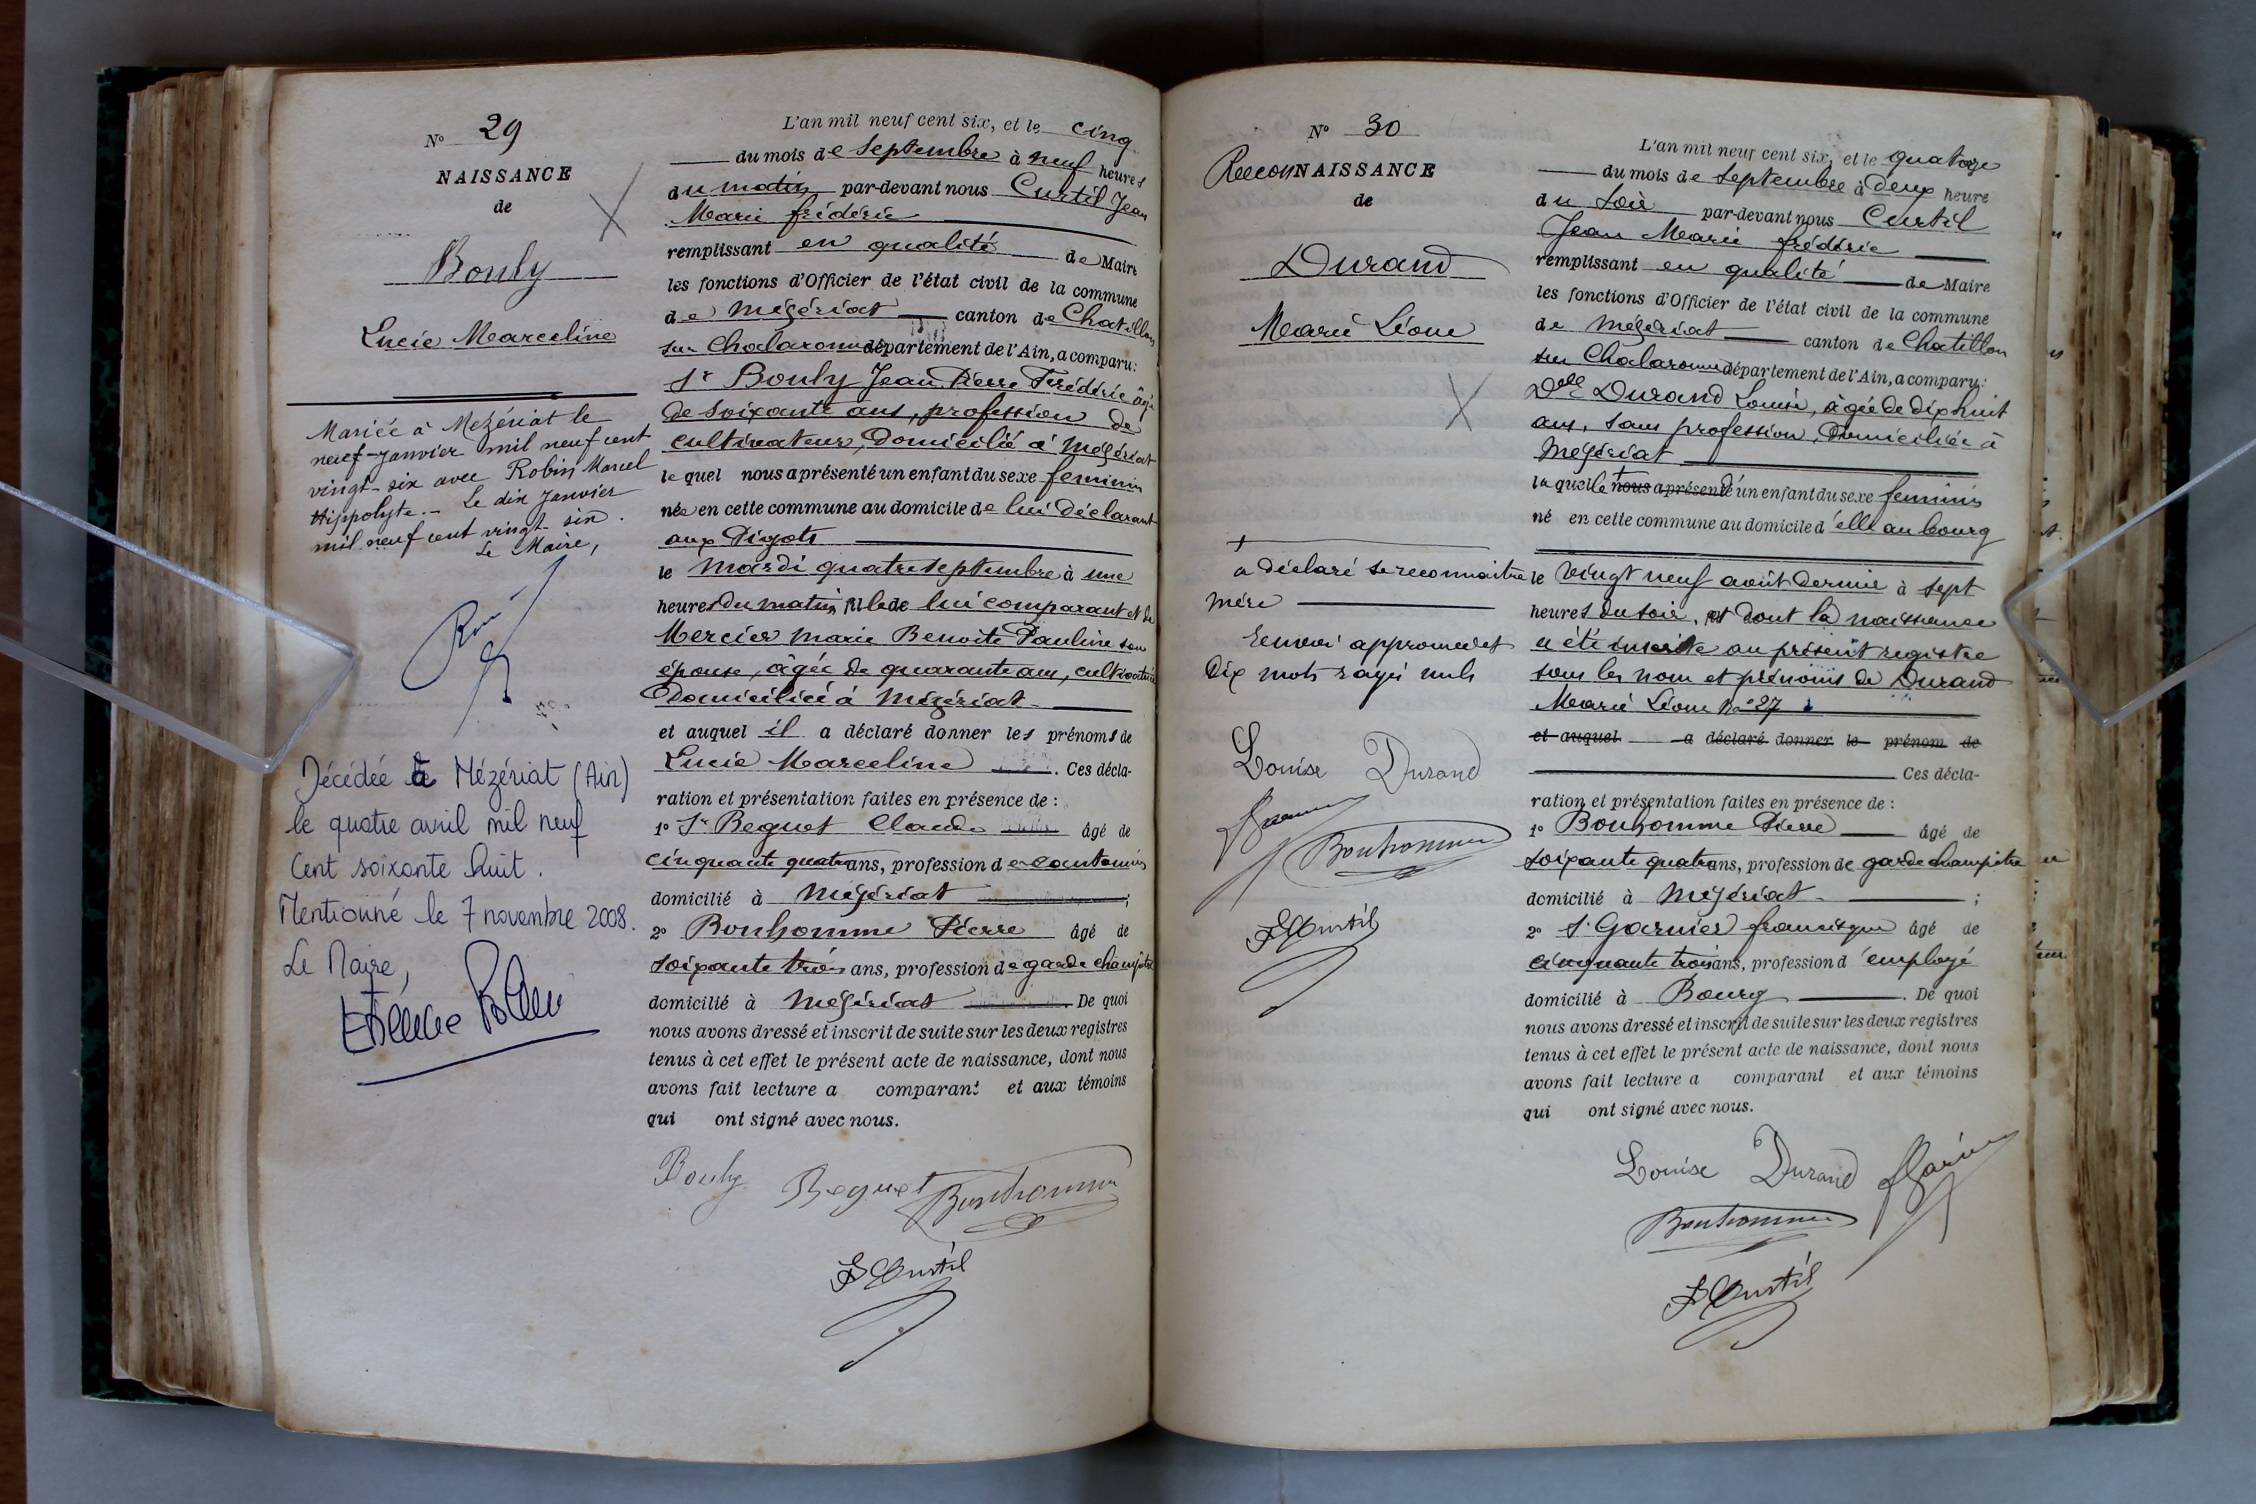 N° 29
NAISSANCE
de
Bouly
Lucie Marceline
Mariée à Mézériat le
neuf janvier mil neuf cent
vingt-six avec Robin Marcel
Hippolyte. - Le dix Janvier
mil neuf cent vingt-six.
Le Maire,
Décédée à Mézériat (Ain)
le quatre avril mil neuf
Cent soixante huit.
Mentionné le 7 novembre 2008.
Le Maire,
L'an mil neuf cent six, et le cinq
du mois de Septembre à neuf heures
du matin par-devant nous Curtil Jean
Marie frédéric
remplissant en qualité de Maire
les fonctions d'Officier de l'état civil de la commune
de Mézériat canton de Chatillon
sur Chalaronne département de l'Ain, a comparu:
Sr Bouly Jean Pierre Frédéric âgé
de soixante ans, profession de
cultivateur, domicilié à Mézériat
lequel nous a présenté un enfant du sexe feminin
née en cette commune au domicile de lui déclarant
aux Digots
le Mardi quatre septembre à une
heures du matin, fille de lui comparant et de
Mercier Marie Benoite Pauline son
épouse, âgée de quarante ans, cultivatrice
Domiciliée à Mézériat
et auquel il a déclaré donner les prénoms de
Lucie Marceline. Ces décla-
ration et présentation faites en présence de :
1° Sr Beguet Claude âgé de
cinquante quatre ans, profession de cantonnier
domicilié à Mézériat ;
2° Bonhomme Pierre âgé de
soixante trois ans, profession de garde champêtre
domicilié à Mézériat. De quoi
nous avons dressé et inscrit de suite sur les deux registres
tenus à cet effet le présent acte de naissance, dont nous
avons fait lecture a comparant et aux témoins
qui ont signé avec nous.
Bouly Beguet Bonhomme
Curtil
N° 30
ReconNAISSANCE
de
Durand
Marie Léone
a déclaré se reconnaitre
mère
Renvoi approuvé et
Dix mots rayés nuls
Louise Durand
Bonhomme
Curtil
L'an mil neuf cent six, et le quatorze
du mois de Septembre à deux heure
du soir par-devant nous Curtil
Jean Marie frédéric
remplissant en qualité de Maire
les fonctions d'Officier de l'état civil de la commune
de Mézériat canton de Chatillon
sur Chalaronne département de l'Ain, a comparu:
Delle Durand Louise, âgée de dix huit
ans, sans profession, domiciliée à
Mézériat
laquelle nous a présenté un enfant du sexe feminin
né en cette commune au domicile d'elle au bourg
le vingt neuf août dernier à sept
heures du soir, et dont la naissance
a été inscrite au présent registre
sous les nom et prénoms de Durand
Marie Léone n° 27
et auquel a déclaré donner le prénom de
Ces décla-
ration et présentation faites en présence de :
1° Bonhomme Pierre âgé de
soixante quatre ans, profession de garde champêtre
domicilié à Mézériat. ;
2° S. Garnier francisque âgé de
cinquante trois ans, profession d'employé
domicilié à Bourg. De quoi
nous avons dressé et inscrit de suite sur les deux registres
tenus à cet effet le présent acte de naissance, dont nous
avons fait lecture a comparant et aux témoins
qui ont signé avec nous.
Louise Durand
Bonhomme
Curtil